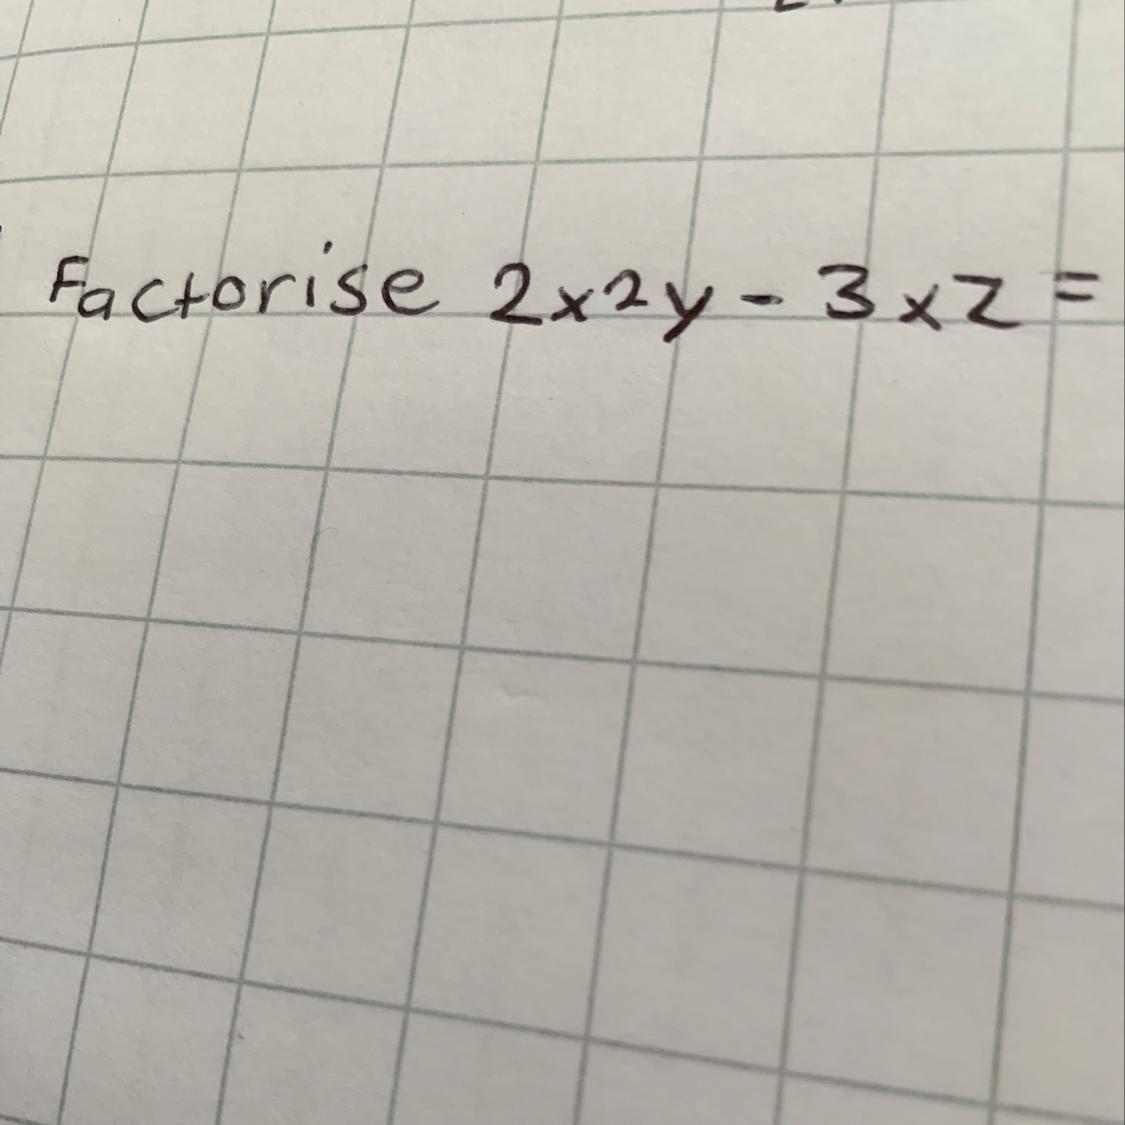 Factorise 2x²y - 3xz =